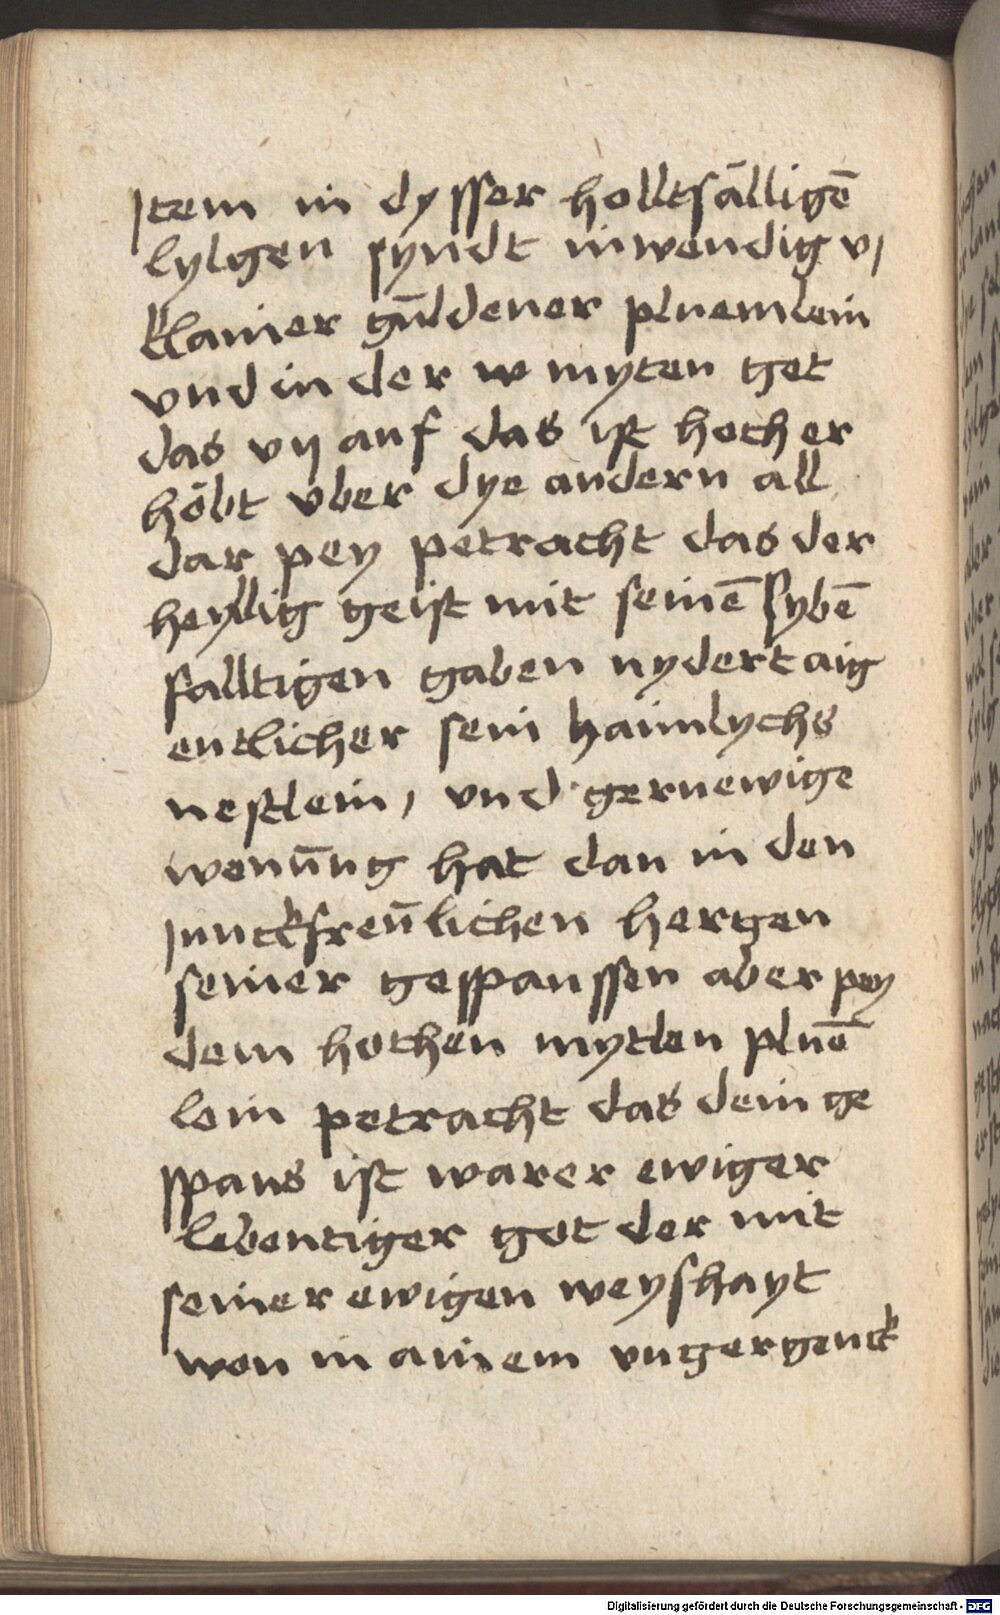 Jtem in dysser holltsälligē
lylgen syndt inwendig vj
klainer gu̅ldener pluemlein
vnd in der w myten get
das vij auf das ist hoch er
höbt vber dye andern all
dar pey petracht das der
heyllig geist mit seinē sybē
falltigen gaben nydert aig
entlicher sein haimlychs
nestlein, vnd geruewige
wonu̅ng hat dan in den
junckfreu̅lichen hergen
seiner gesspanssen aber pey
dem hochen mytlen pluē
lein petracht das dein ge
spans ist warer ewiger
lebentiger got der mit
seiner ewigen weyshayt
won in ainem vngergenck
Digitalisierung gefördert durch die Deutsche Forschungsgemeinschaft - DFG